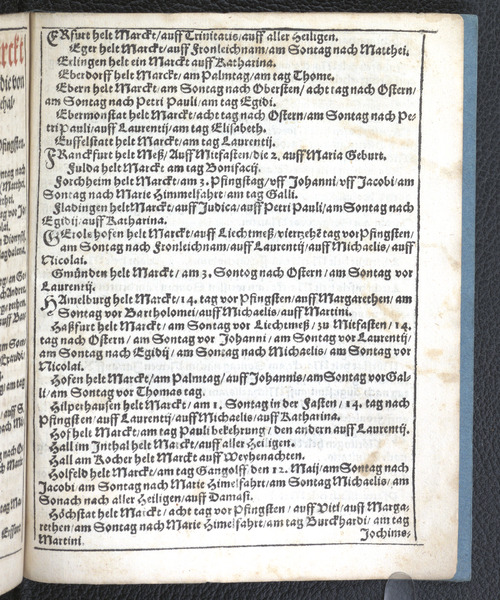 ERfurt helt Marckt/auff Trinitatis/auff aller Heiligen.
Eger helt Marckt/auff Fronleichnam/am Sontag nach Matthei.
Eßlingen helt ein Marckt auff Katharina.
Eberdorff helt Marckt/am Palmtag/am tag Thome.
Ebern helt Marckt/am Sontag nach Obersten/acht tag nach Ostern/
am Sontag nach Petri Pauli/am tag Egidi.
Ebermonstat helt Marckt/acht tag nach Ostern/am Sontag nach Pe-
tri Pauli/auff Laurentij/am tag Elisabeth.
Euffelstatt helt Marckt/am tag Laurentij.
FRanckfurt helt Meß/Auff Mitfasten/die 2. auff Maria Geburt.
Fulda helt Marckt am tag Bonifacij.
Forchheim helt Marckt/am 3. Pfingstag/vff Johanni/vff Jacobi/am
Sontag nach Marie Himmelfahrt/am tag Galli.
Fladingen helt Marckt/auff Judica/auff Petri Pauli/am Sontag nach
Egidij/auff Katharina.
GErolshofen helt Marckt/auff Liechtmeß/viertzehē tag vor Pfingsten/
am Sontag nach Fronleichnam/auff Laurentij/auff Michaelis/auff
Nicolai.
Gmünden helt Marckt/am 3. Sontog nach Ostern/am Sontag vor
Laurentij.
HAmelburg helt Marckt/14. tag vor Pfingsten/auff Margarethen/am
Sontag vor Bartholomei/auff Michaelis/auff Martini.
Haßfurt helt Marckt/am Sontag vor Liechtmeß/zu Mitfasten/14.
tag nach Ostern/am Sontag vor Johanni/am Sontag vor Laurentij/
am Sontag nach Egidij/am Sontag nach Michaelis/am Sontag vor
Nicolai.
Hofen helt Marckt/am Palmtag/auff Johannis/am Sontag vor Gal-
li/am Sontag vor Thomas tag.
Hilperhausen helt Marckt/am 1. Sontag in der Fasten/14. tag nach
Pfingsten/auff Laurentij/auff Michaelis/auff Katharina.
Hof helt Marckt/am tag Pauli bekehrung/den andern auff Laurentij.
Hall im Inthal helt Marckt/auff aller Heiligen.
Hall am Kocher helt Marckt auff Weyhenachten.
Holfeld helt Marckt/am tag Gangolff den 12. Maij/am Sontag nach
Jacobi/am Sontag nach Marie Himelfahrt/am Sontag Michaelis/am
Sonach nach aller Heiligen/auff Damasi.
Höchstat helt Marckt/acht tag vor Pfingsten/auff Viti/auff Marga-
rethen/am Sontag nach Marie Himelfahrt/am tag Burckhardi/am tag
Martini.
Jochims-